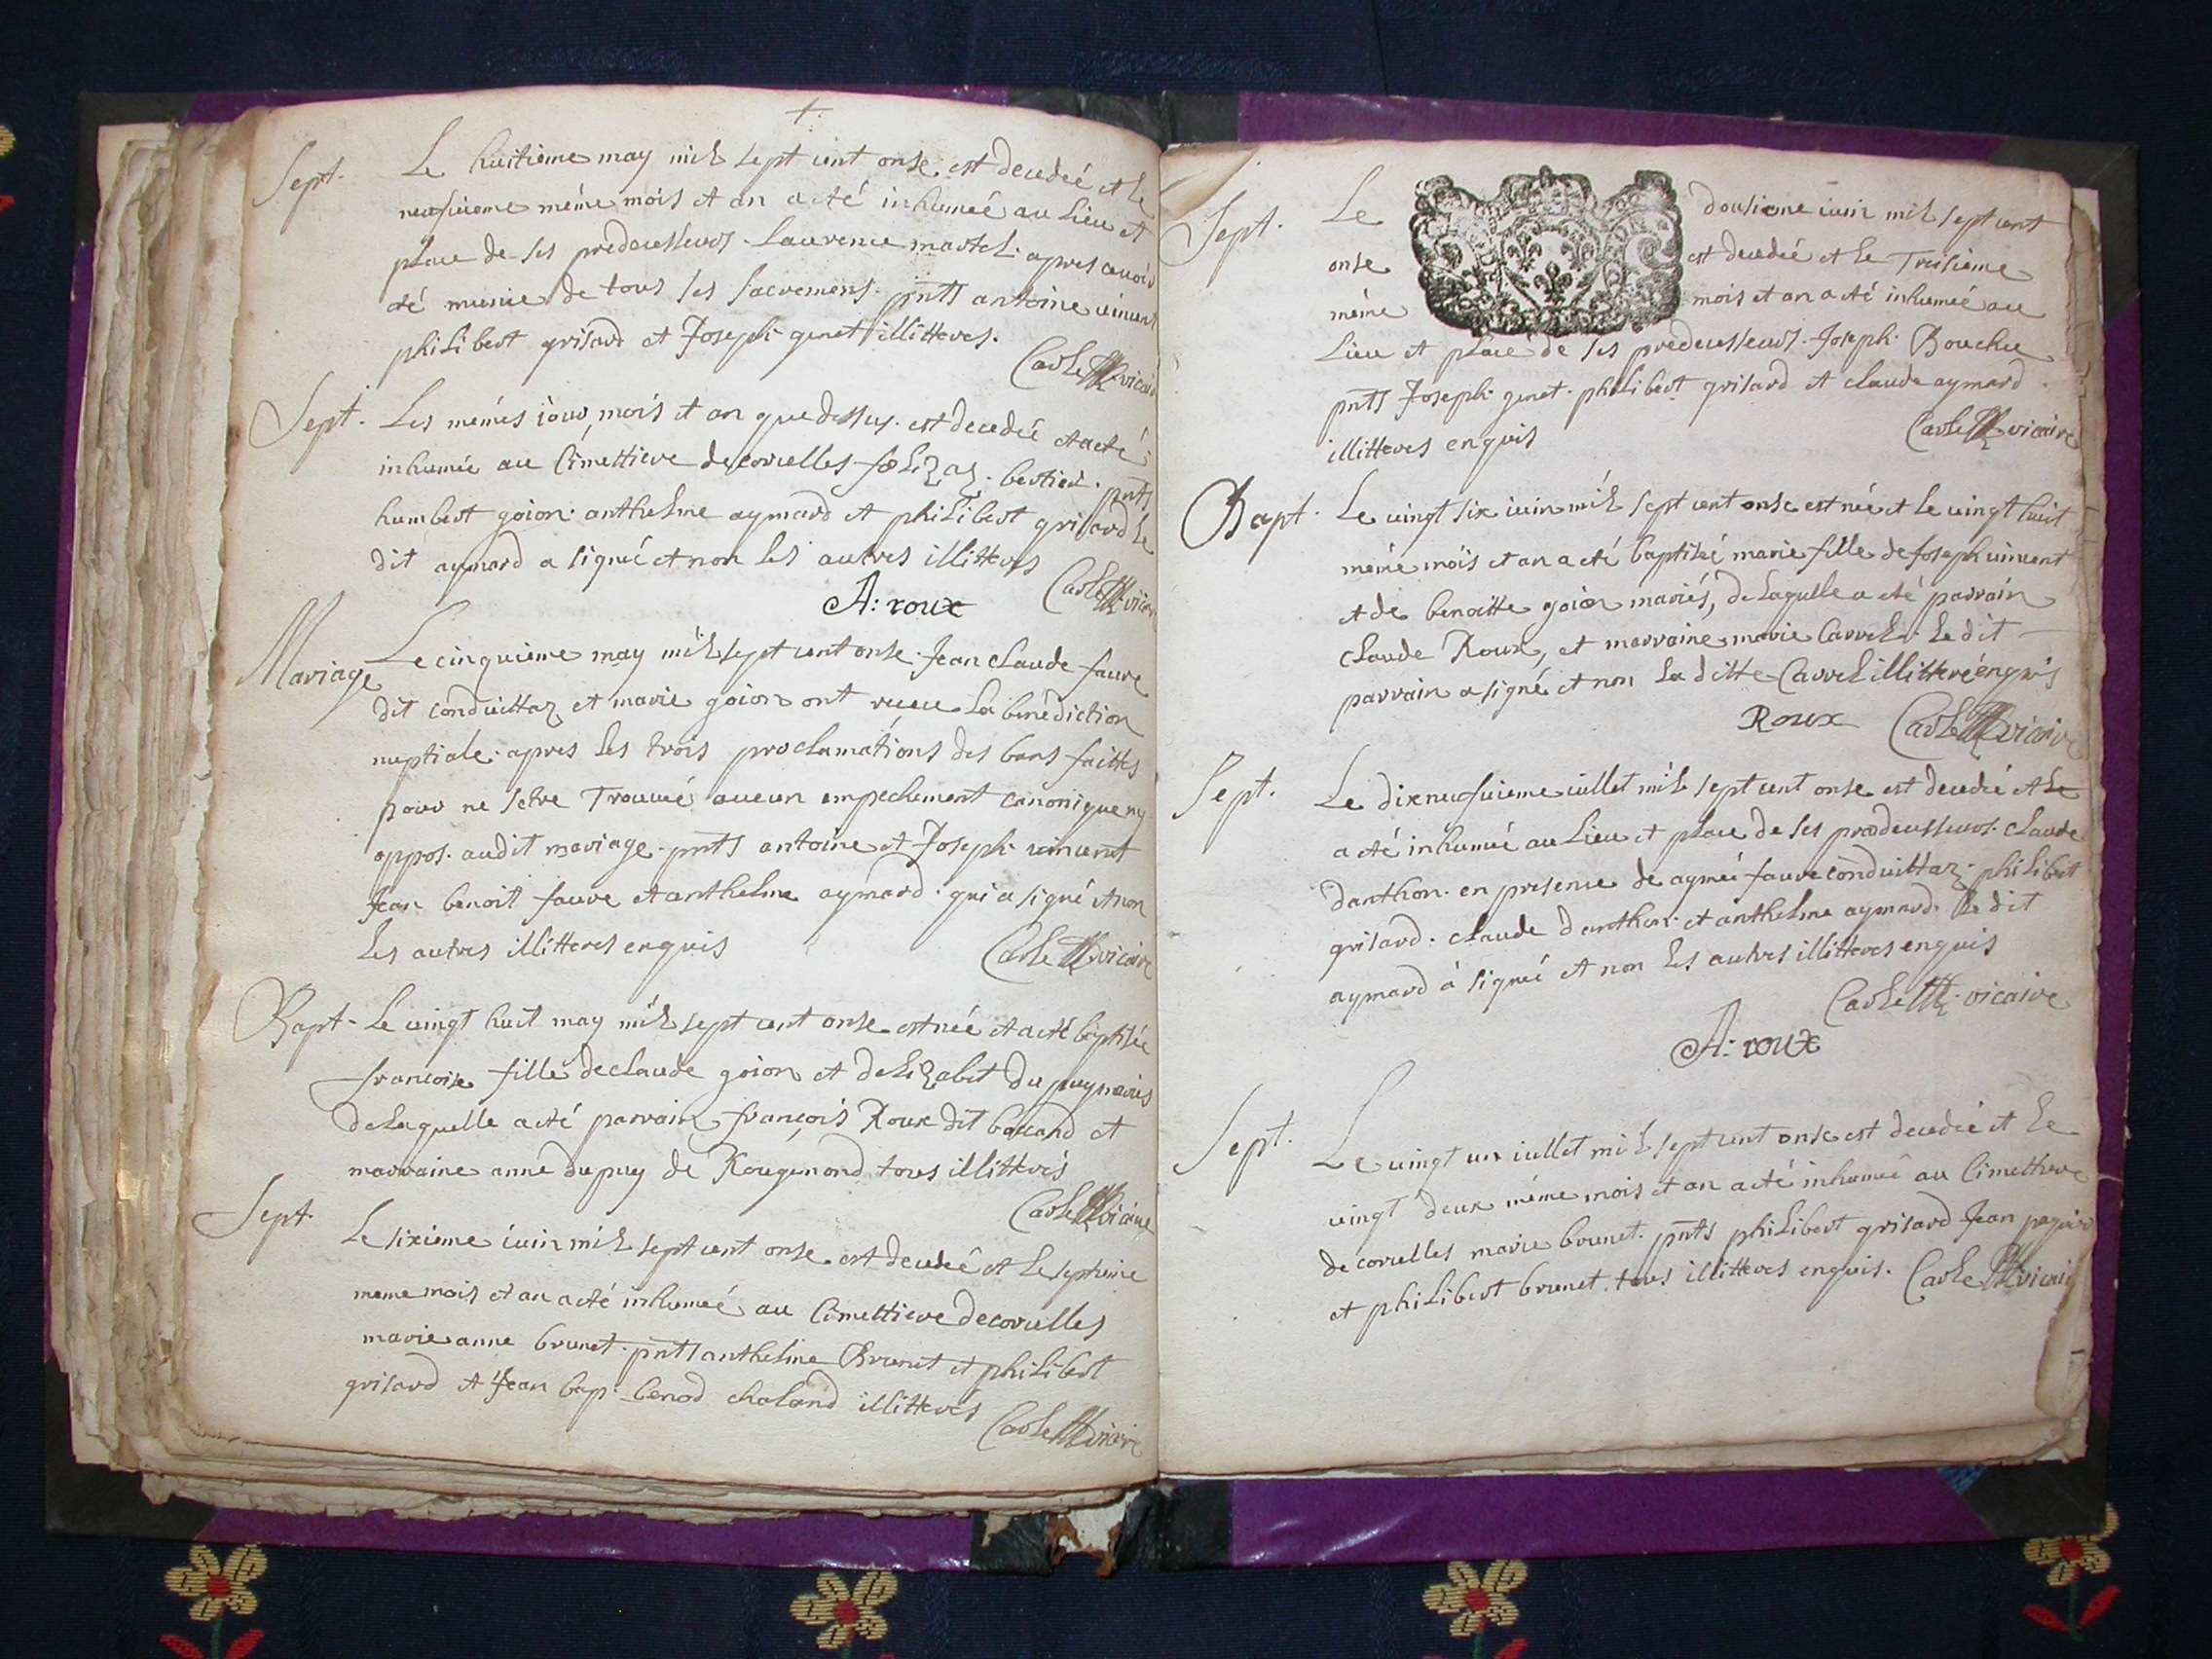 +
Sept. Le huitieme may mil sept cent onse est decedeé et le
neufuieme méme mois et an a eté inhumeé au Lieu et
place de ses predecesseurs. Laurence martel. apres auoir
eté munie de tous ses sacremens. pnts antoine uincent
philibert grisard et Joseph genet illitteres.
Carle vicaire
Sept. Les mémes iour, mois et an que dessus. est decedée et a eté
inhumée au Cimettiere de corcelles bertier. pnts
humbert goion. anthelme aymard et philibert grisard le
dit aymard a signé et non les autres illitteres
Carle vicaire
A: roux
Mariage Le cinquieme may mil sept cent onse. Jean claude faure
dit conduittaz et marie goion ont receu la benediction
nuptiale. apres les trois proclamations des bans faittes
pour ne setre Trouué aucun empechement canonique ny
oppos. audit mariage. pnts antoine et Joseph uincent
Jean benoit faure et anthelme aymard. qui a signé et non
les autres illitteres enquis
Carle vicaire
Bapt. Le uingt huit may mil sept cent onse est neé et a eté baptisée
francoise fille de claude goion et delizabet du puy mariés
de laquelle a eté parrain françois Roux dit et
marraine anne dupuy de Rougemond tous illitterés
Carle vicaire
Sept. Le sixieme iuin mil sept cent onse est decedeé et le septieme
meme mois et an a eté inhumeé au Cimettiere de corcelles
marie anne brunet. pnts anthelme Brunet et philibert
grisard et Jean bap. benod chaland illitterés
Carle vicaire
Sept. Le dousieme iuin mil sept cent
onse est decedeé et le Treisieme
méme mois et an a eté inhumeé au
Lieu et place de ses predecesseurs. Joseph Bouchu
pnts Joseph genet. philibert grisard et claude aymard.
illitteres enquis
Carle vicaire
Bapt. Le uingt six iuin mil sept cent onse est neé et le uingt huit
méme mois et an a eté baptiseé marie fille de Joseph uincent
et de benoitte goion mariés, de laquelle a eté parrain
claude Roux, et marraine marie Carrel. le dit
parrain a signé et non la ditte Carrel illitteré enquis
Roux Carle vicaire
Sept. Le dixneufuieme iuillet mil sept cent onse est decedé et le
a eté inhumé au Lieu et place de ses predecesseurs. claude
danthon. en presence de aymé faure conduittaz. philibert
grisard. claude danthon. et anthelme aymard. le dit
aymard à signé et non les autres illitteres enquis
Carle vicaire
A: roux
Sept. Le uingt un iuillet mil sept cent onse est decedeé et le
uingt deux méme mois et an a eté inhumeé au Cimettiere
de corcelles marie brunet. pnts philibert grisard Jean
et philibert brunet. tous illitteres enquis. Carle vicaire